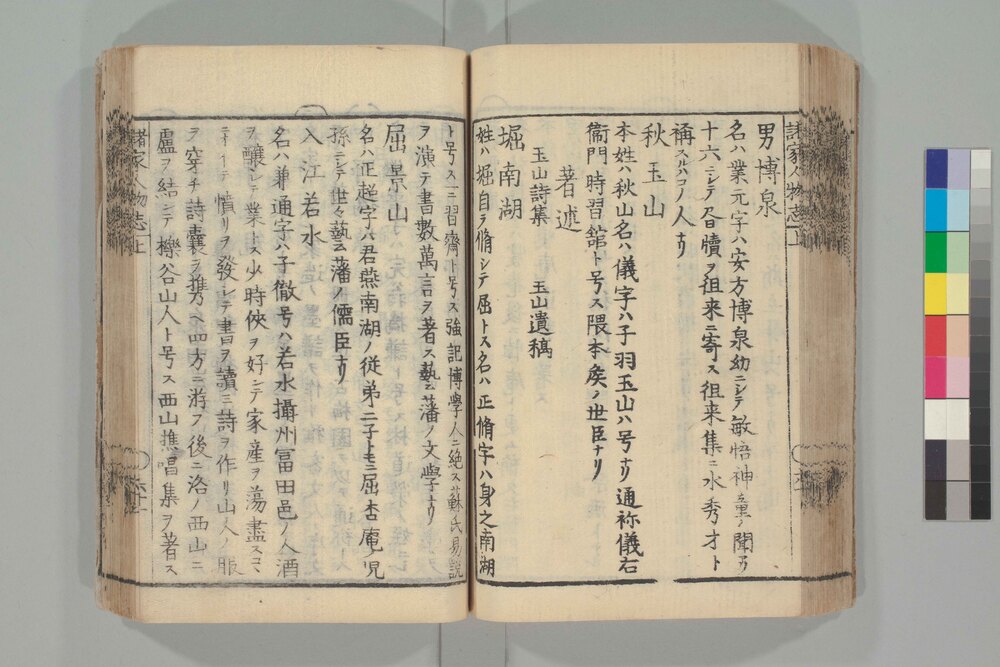 諸家人物志上
男博泉
名ハ業元字ハ安方博泉幼ニシテ敏悟神童ノ聞アリ
十六ニシテ啓牘ヲ徂来ニ寄ス徂来集ニ水秀才ト
稱スルハコノ人ナリ
秋玉山
本姓ハ秋山名ハ儀字ハ子羽玉山ハ号ナリ通称儀右
衞門時習舘ト号ス隈本矦ノ世臣ナリ
著述
玉山詩集 玉山遺稿
堀南湖
姓ハ堀自ラ脩シテ屈トス名ハ正脩字ハ身之南湖
ト号ス一ニ習齋ト号ス強記博學人ニ絶ス蘇氏易説
ヲ演テ書數萬言ヲ著ス藝藩ノ文學ナリ
屈景山
名ハ正超字ハ君燕南湖ノ從弟ニ子トモニ屈杏庵ノ児
孫ニシテ世々藝藩ノ儒臣ナリ
入江若水
名ハ兼通字ハ子徹号ハ若水攝州冨田邑ノ人酒
ヲ醸シテ業トス少時俠ヲ好シテ家産ヲ蕩盡スコヽ
ニオイテ憤リヲ發シテ書ヲ讀ミ詩ヲ作リ山人ノ服
ヲ穿チ詩嚢ヲ携ヘ四方ニ游フ後ニ洛ノ西山ニ
盧ヲ結ンテ櫟谷山人ト号ス西山樵唱集ヲ著ス
諸家人物志上